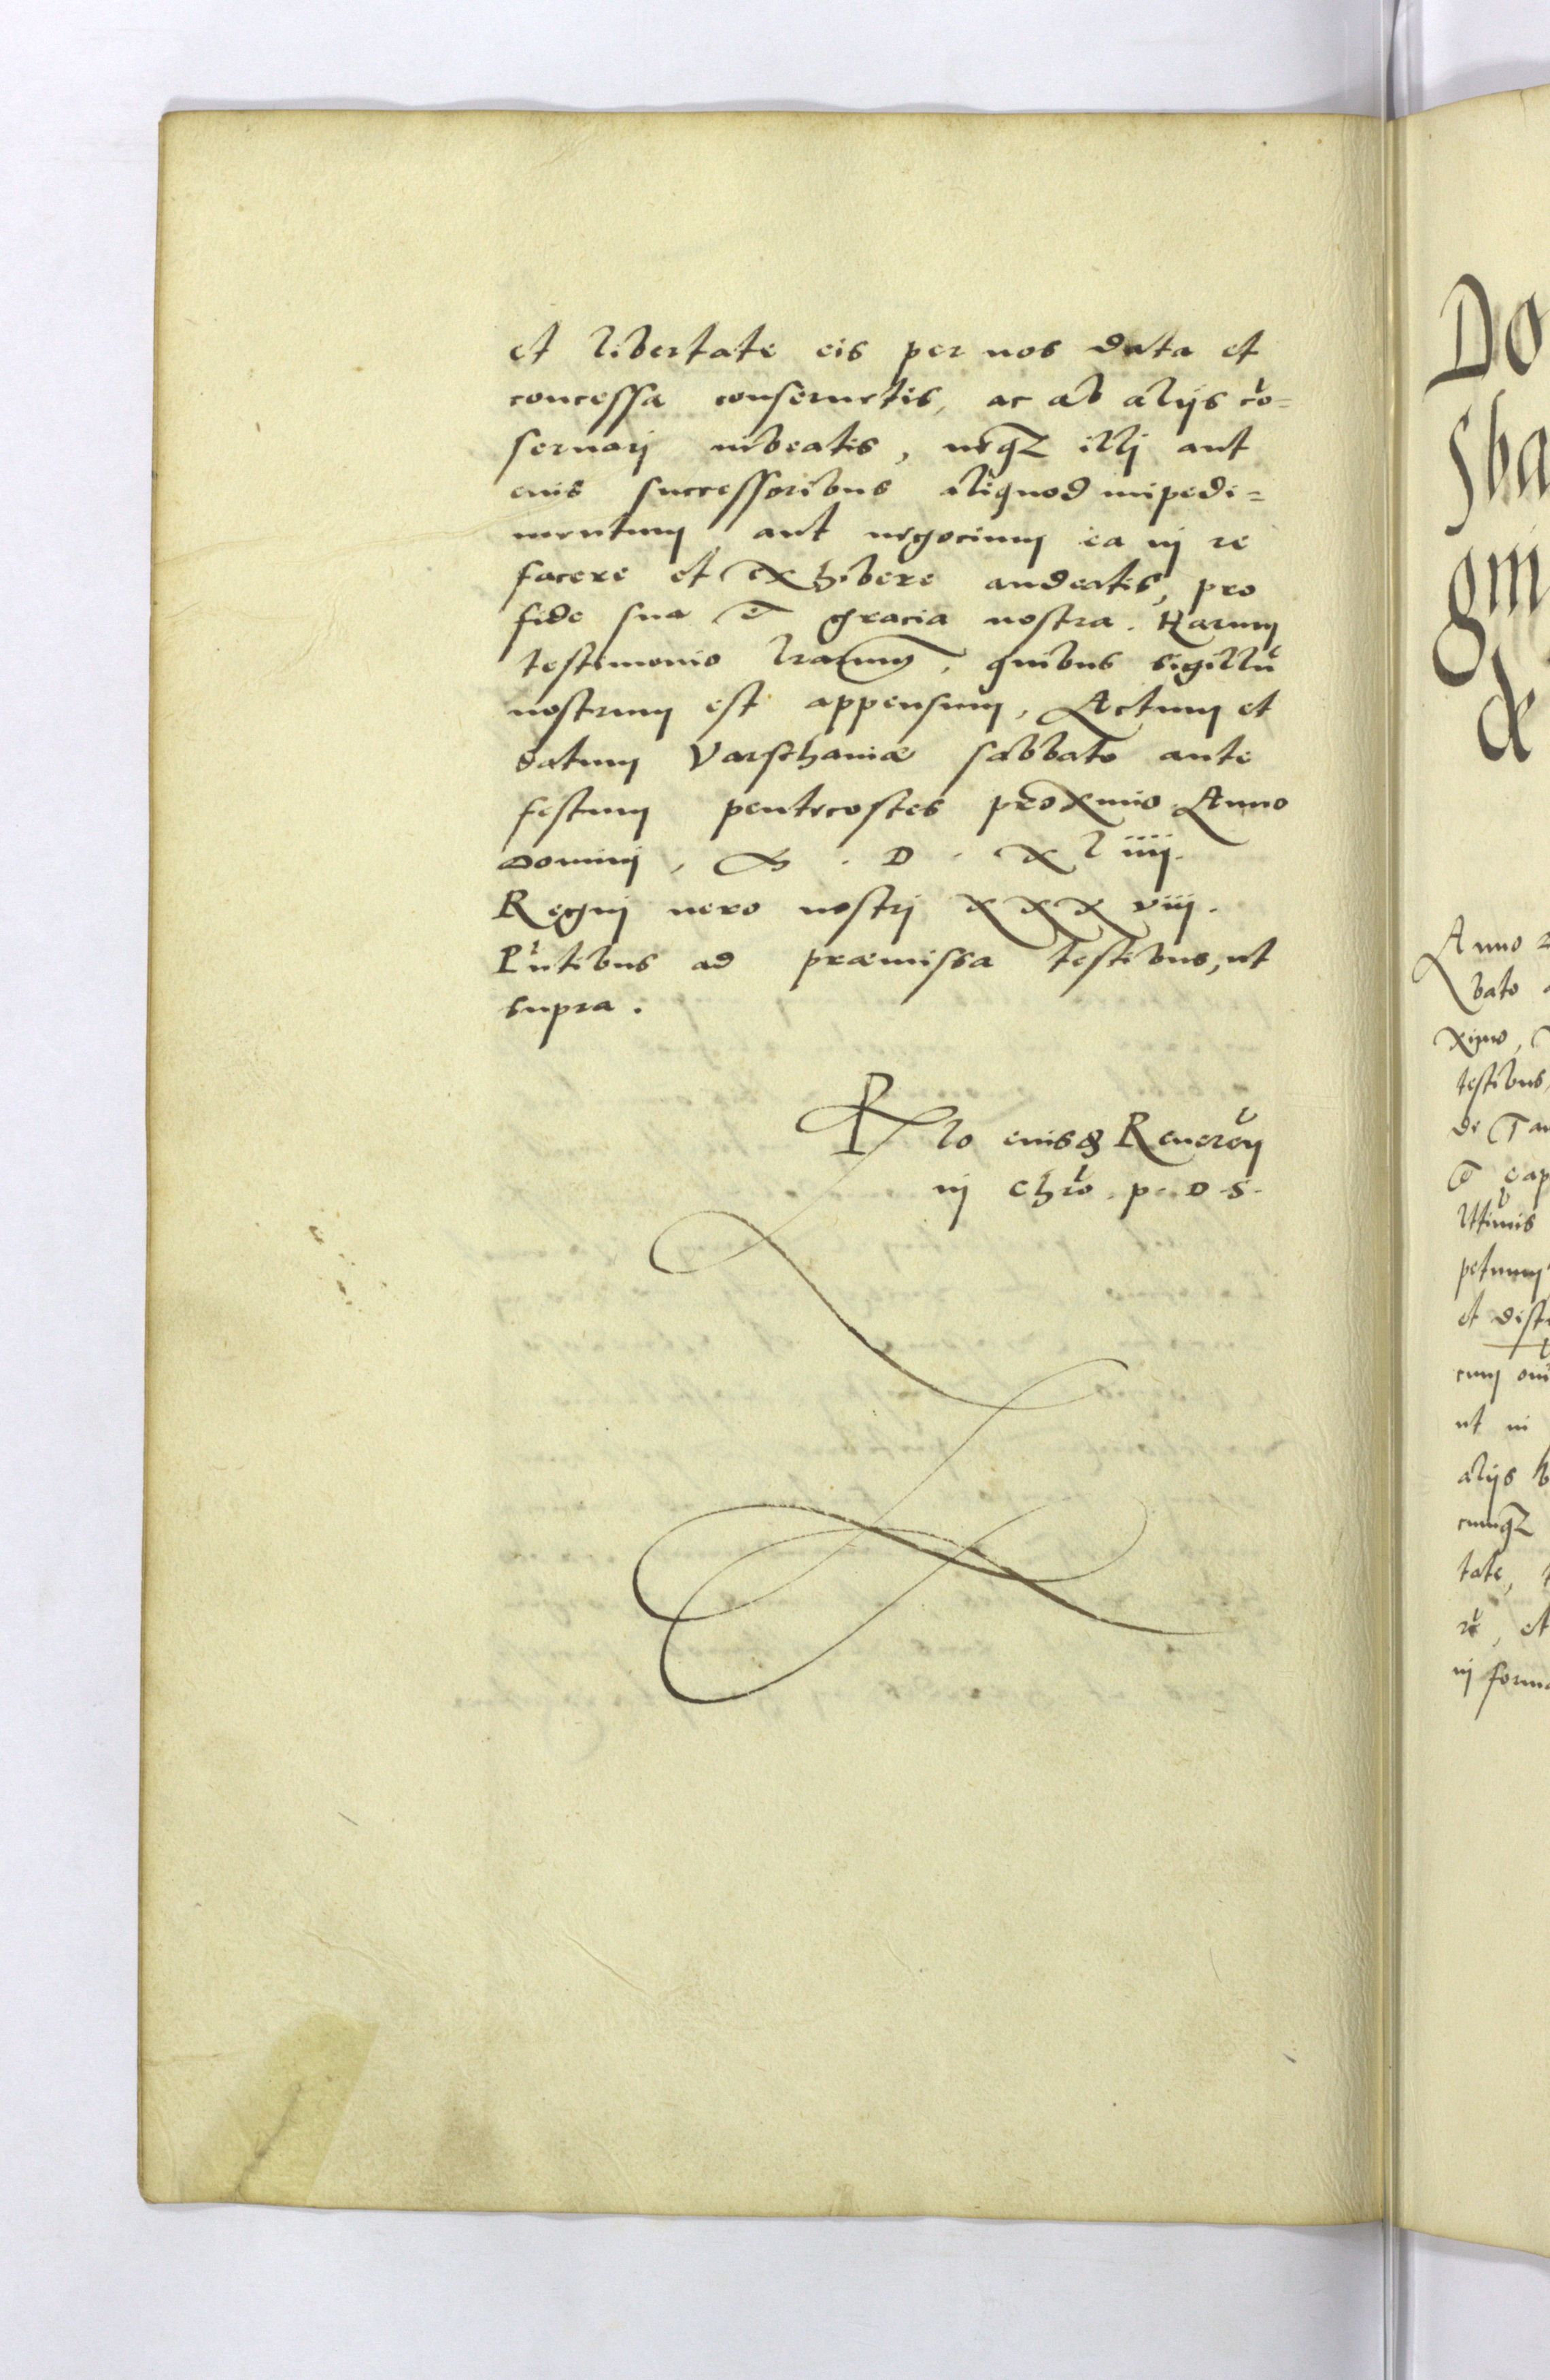 et libertate eis per nos data et
concessa conseruetis, ac ab alijs cõ=
seruarj iubeatis, neqz illj aut
eius successoribus aliquod impedi=
mentum aut negocium ea in re
facere et exhibere audeatis, pro
fide sua et gracia nostra. Harum
testimonio lrarum, quibus sigillũ
nostrum est appensum, Actum et
datum Varschauiæ sabbato ante
festum pentecostes proximo Anno
Dominj, M. D. xl iiij.
Regnj uero nostrj xxx viij.
Pñtibus ad præmissa testibus, ut
supra.
Rlo eiusd Reuerẽn
in Chrõ. p. D. S.
Do
sba
gm
&
Anno
bato
ximo,
testibus,
de Tar
et cap
ltimis
petuum
et dist
cum om
ut in
alijs b
cumqz
tate,
rũ, et
in form